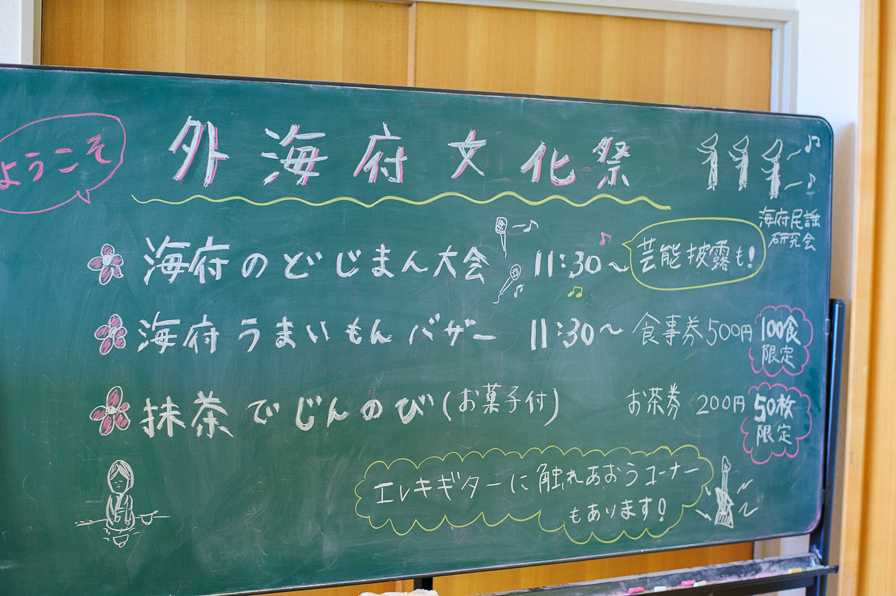 ようこそ
外海府文化祭
海府民謡
研究会
海府のどじまん大会 11:30~ 芸能披露も!
海府うまいもんバザー 11:30~ 食事券500円 100食限定
抹茶でじんのび(お菓子付) お茶券 200円 50枚限定
エレキギターに触れあおうコーナー
もあります!